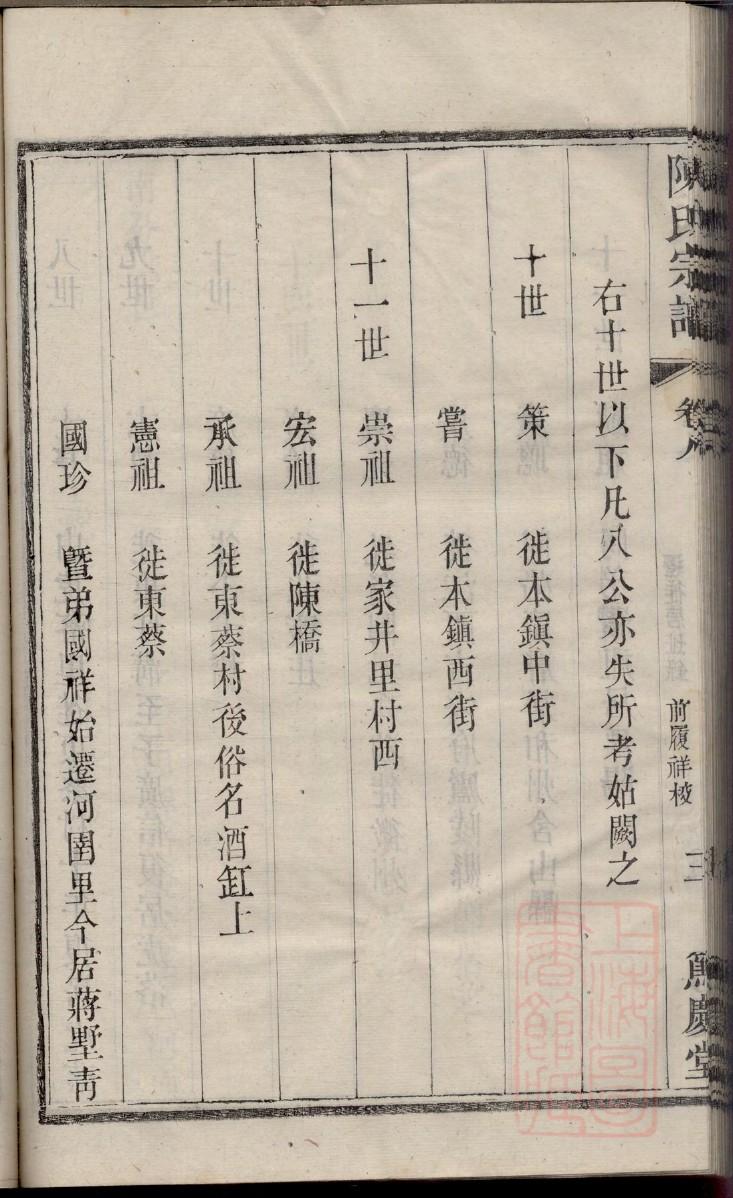 陳氏宗譜 卷八 前履祥校 三 篤慶堂
右十世以下凡八公亦失所考姑闕之
十世 策 徙本鎭中街
嘗 徙本鎭西街
十一世 崇祖 徙家井里村西
宏祖 徙陳橋
承祖 徙東蔡村後俗名酒缸上
憲祖 徙東蔡
國珍 曁弟國祥始遷河圉里今居蔣墅靑